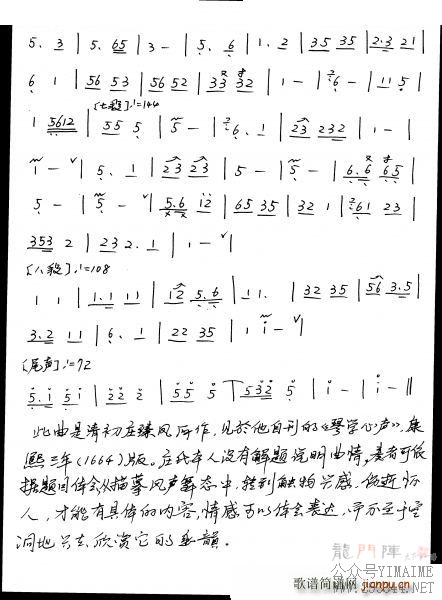 5. 3 | 5. 65 | 3 - | 5. 6 | 1. 2 | 35 35 | 2·3 21 |
6 1 | 56 53 | 56 52 | 33 32 | 1 - | 6 - | 11 5 |
[七段] ♩=144
1 5612 | 55 5 | 5 - | 6. 1 | 23 232 | 1 - |
1 - | 5. 1 | 23 23 | 5 - | 5 - | 6.6 65 |
5 - | 5 - | 5.6 12 | 65 35 | 32 1 | 61 23 |
353 2 | 23 2.1 | 1 - |
[八段] ♩=108
1 1 | 1.1 11 | 12 5.6 | 11. | 32 35 | 56 3.5 |
3.2 11 | 6. 1 | 22 35 | 1 1 - |
[尾声] ♩=72
5.1 51 | 22 2 | 55 5 | 532 5 | 1 - | 1 - ‖
此曲是清初庄臻凤所作,见於他自刊的《琴学心声》,康
熙三年(1664)版。庄氏本人没有解题说明曲情,奏者可依
据题目体会从描摹风声舞态中,转到触物兴感
人,才能有具体的内容,情感可以体会表达,而不至于空
洞地只去欣赏它的音韻。
龍門陣
公众号YIMAIME
歌谱简谱网 jianpu.cn